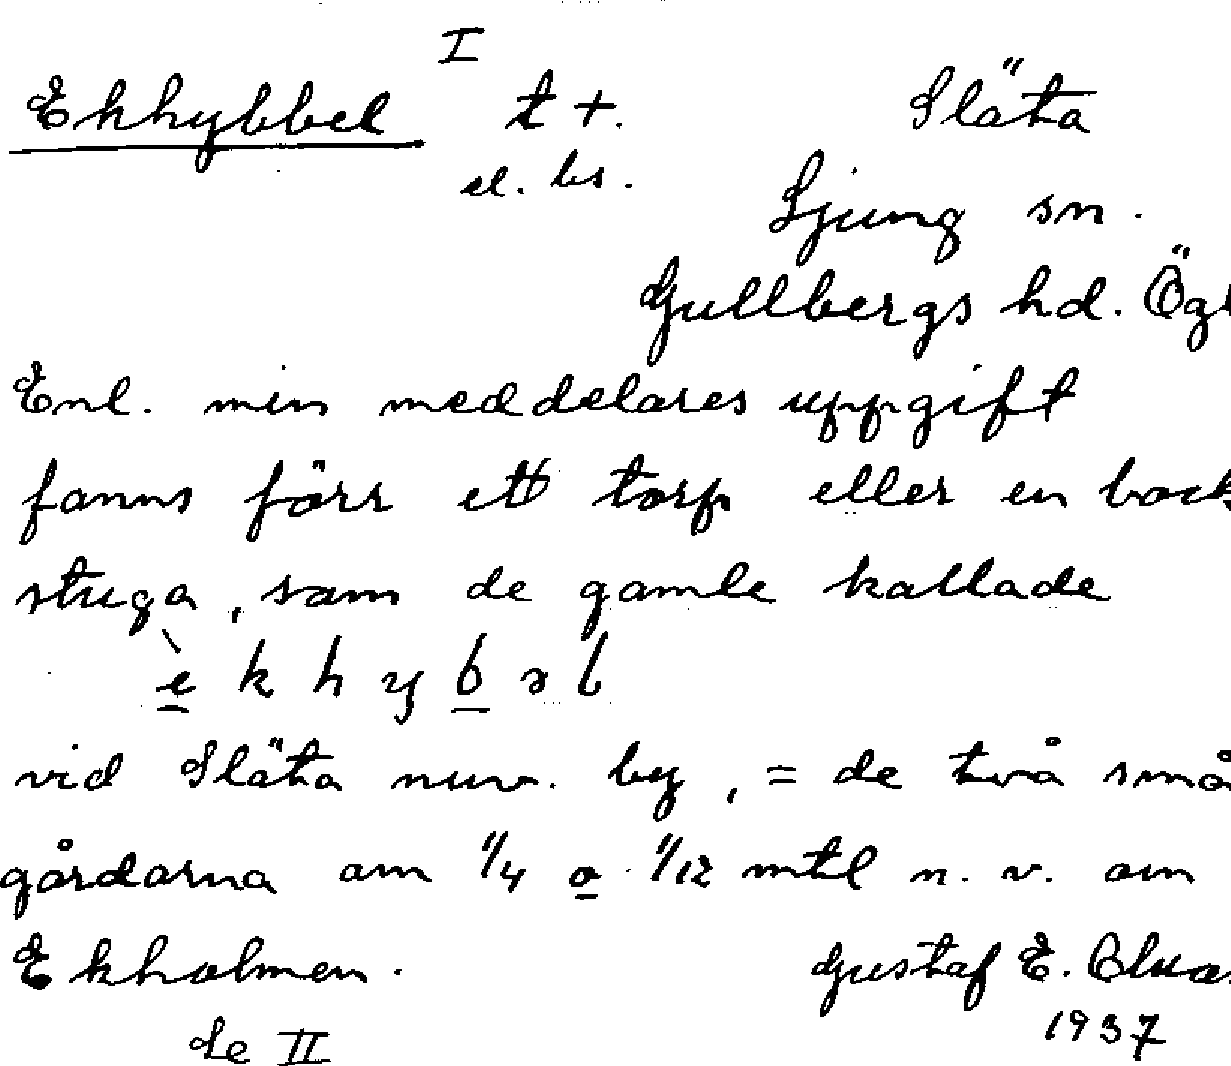 I
Ekhybbel t +. Släta
el. bs.
Ljung sn.
Gullbergs hd. Ög
Enl. min meddelares uppgift
fanns förr ett torp eller en back
stuga, som de gamle kallade
è k h y b ə l
vid Släta nuv. by, = de två små
gårdarna om 1/4 o 1/12 mtl n. v. om
Ekholmen. Gustaf E.
1937
Se II